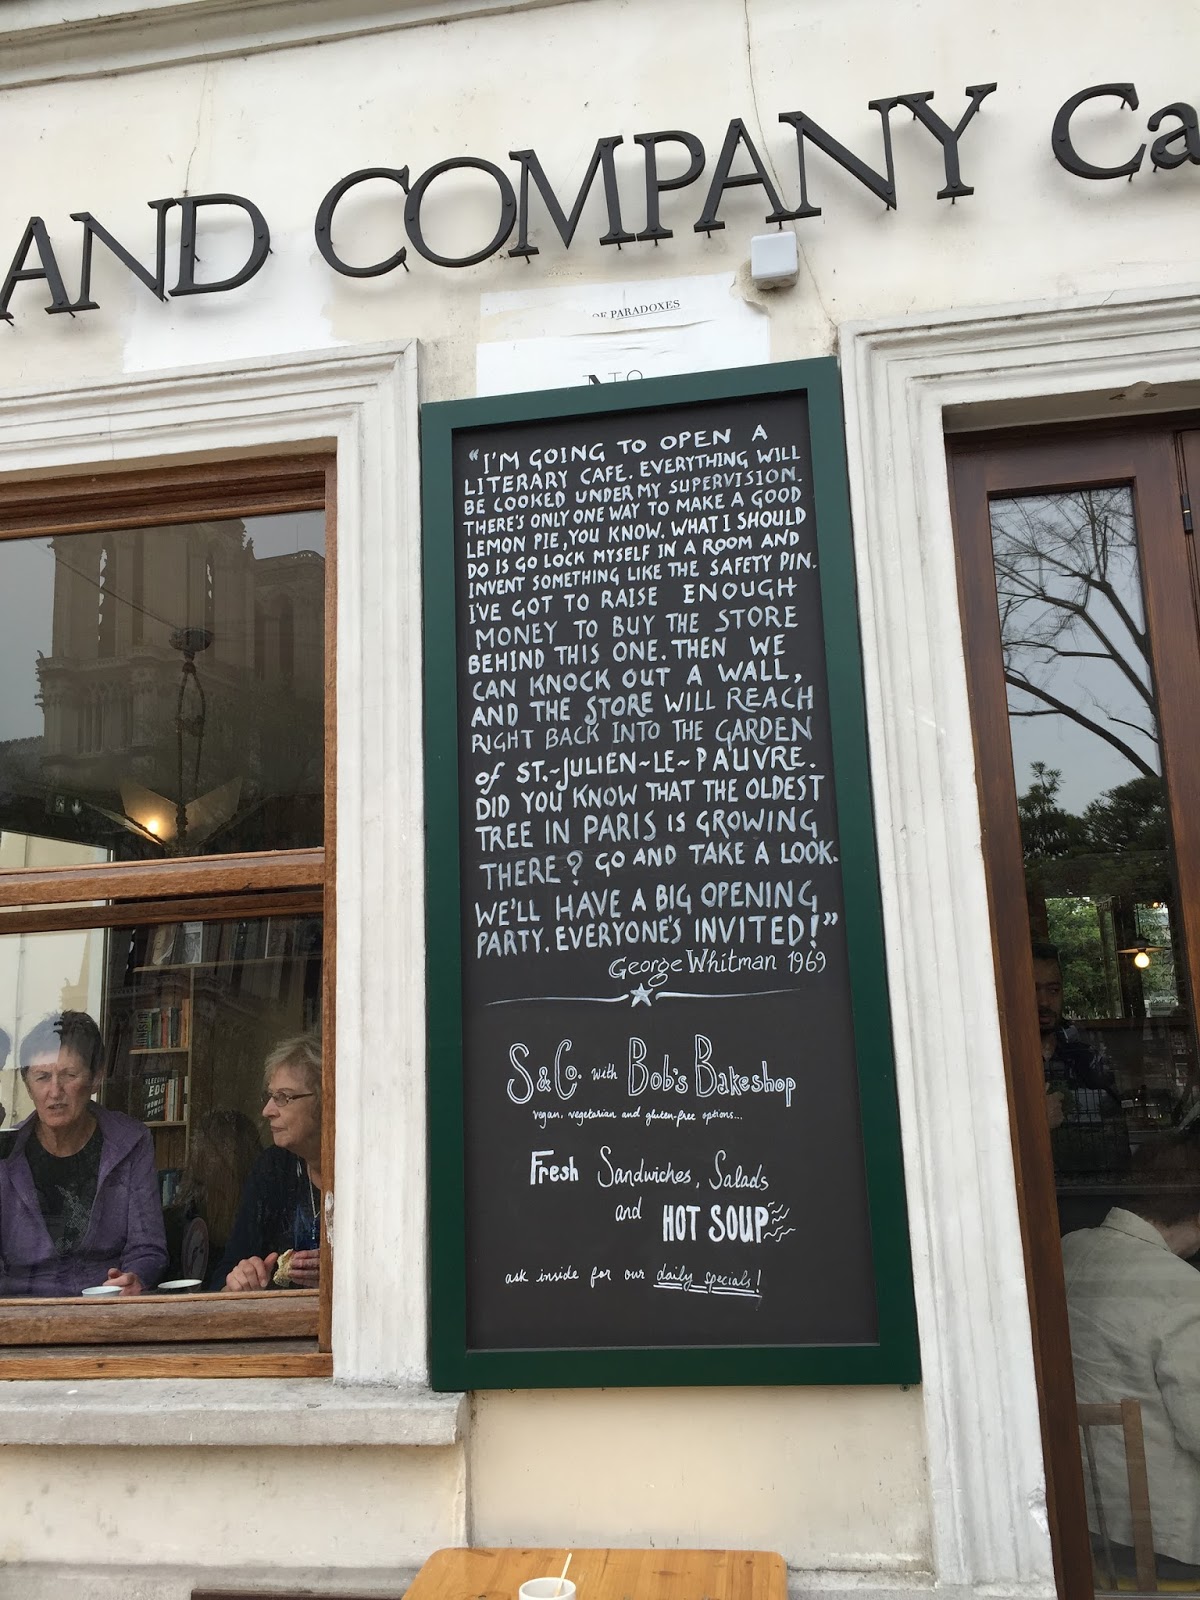 AND COMPANY Ca
OF PARADOXES
"I'M GOING TO OPEN A
LITERARY CAFE. EVERYTHING WILL
BE COOKED UNDER MY SUPERVISION.
THERE'S ONLY ONE WAY TO MAKE A GOOD
LEMON PIE, YOU KNOW. WHAT I SHOULD
DO IS GO LOCK MYSELF IN A ROOM AND
INVENT SOMETHING LIKE THE SAFETY PIN.
I'VE GOT TO RAISE ENOUGH
MONEY TO BUY THE STORE
BEHIND THIS ONE. THEN WE
CAN KNOCK OUT A WALL,
AND THE STORE WILL REACH
RIGHT BACK INTO THE GARDEN
of ST.~JULIEN~LE~PAUVRE.
DID YOU KNOW THAT THE OLDEST
TREE IN PARIS IS GROWING
THERE? GO AND TAKE A LOOK.
WE'LL HAVE A BIG OPENING
PARTY. EVERYONE'S INVITED!"
George Whitman 1969
S&Co. with Bob's Bakeshop
vegan, vegetarian and gluten-free options...
Fresh Sandwiches, Salads
and HOT SOUP
ask inside for our daily specials!
BLEEDING
EDGE
THOMAS
PYNCHON